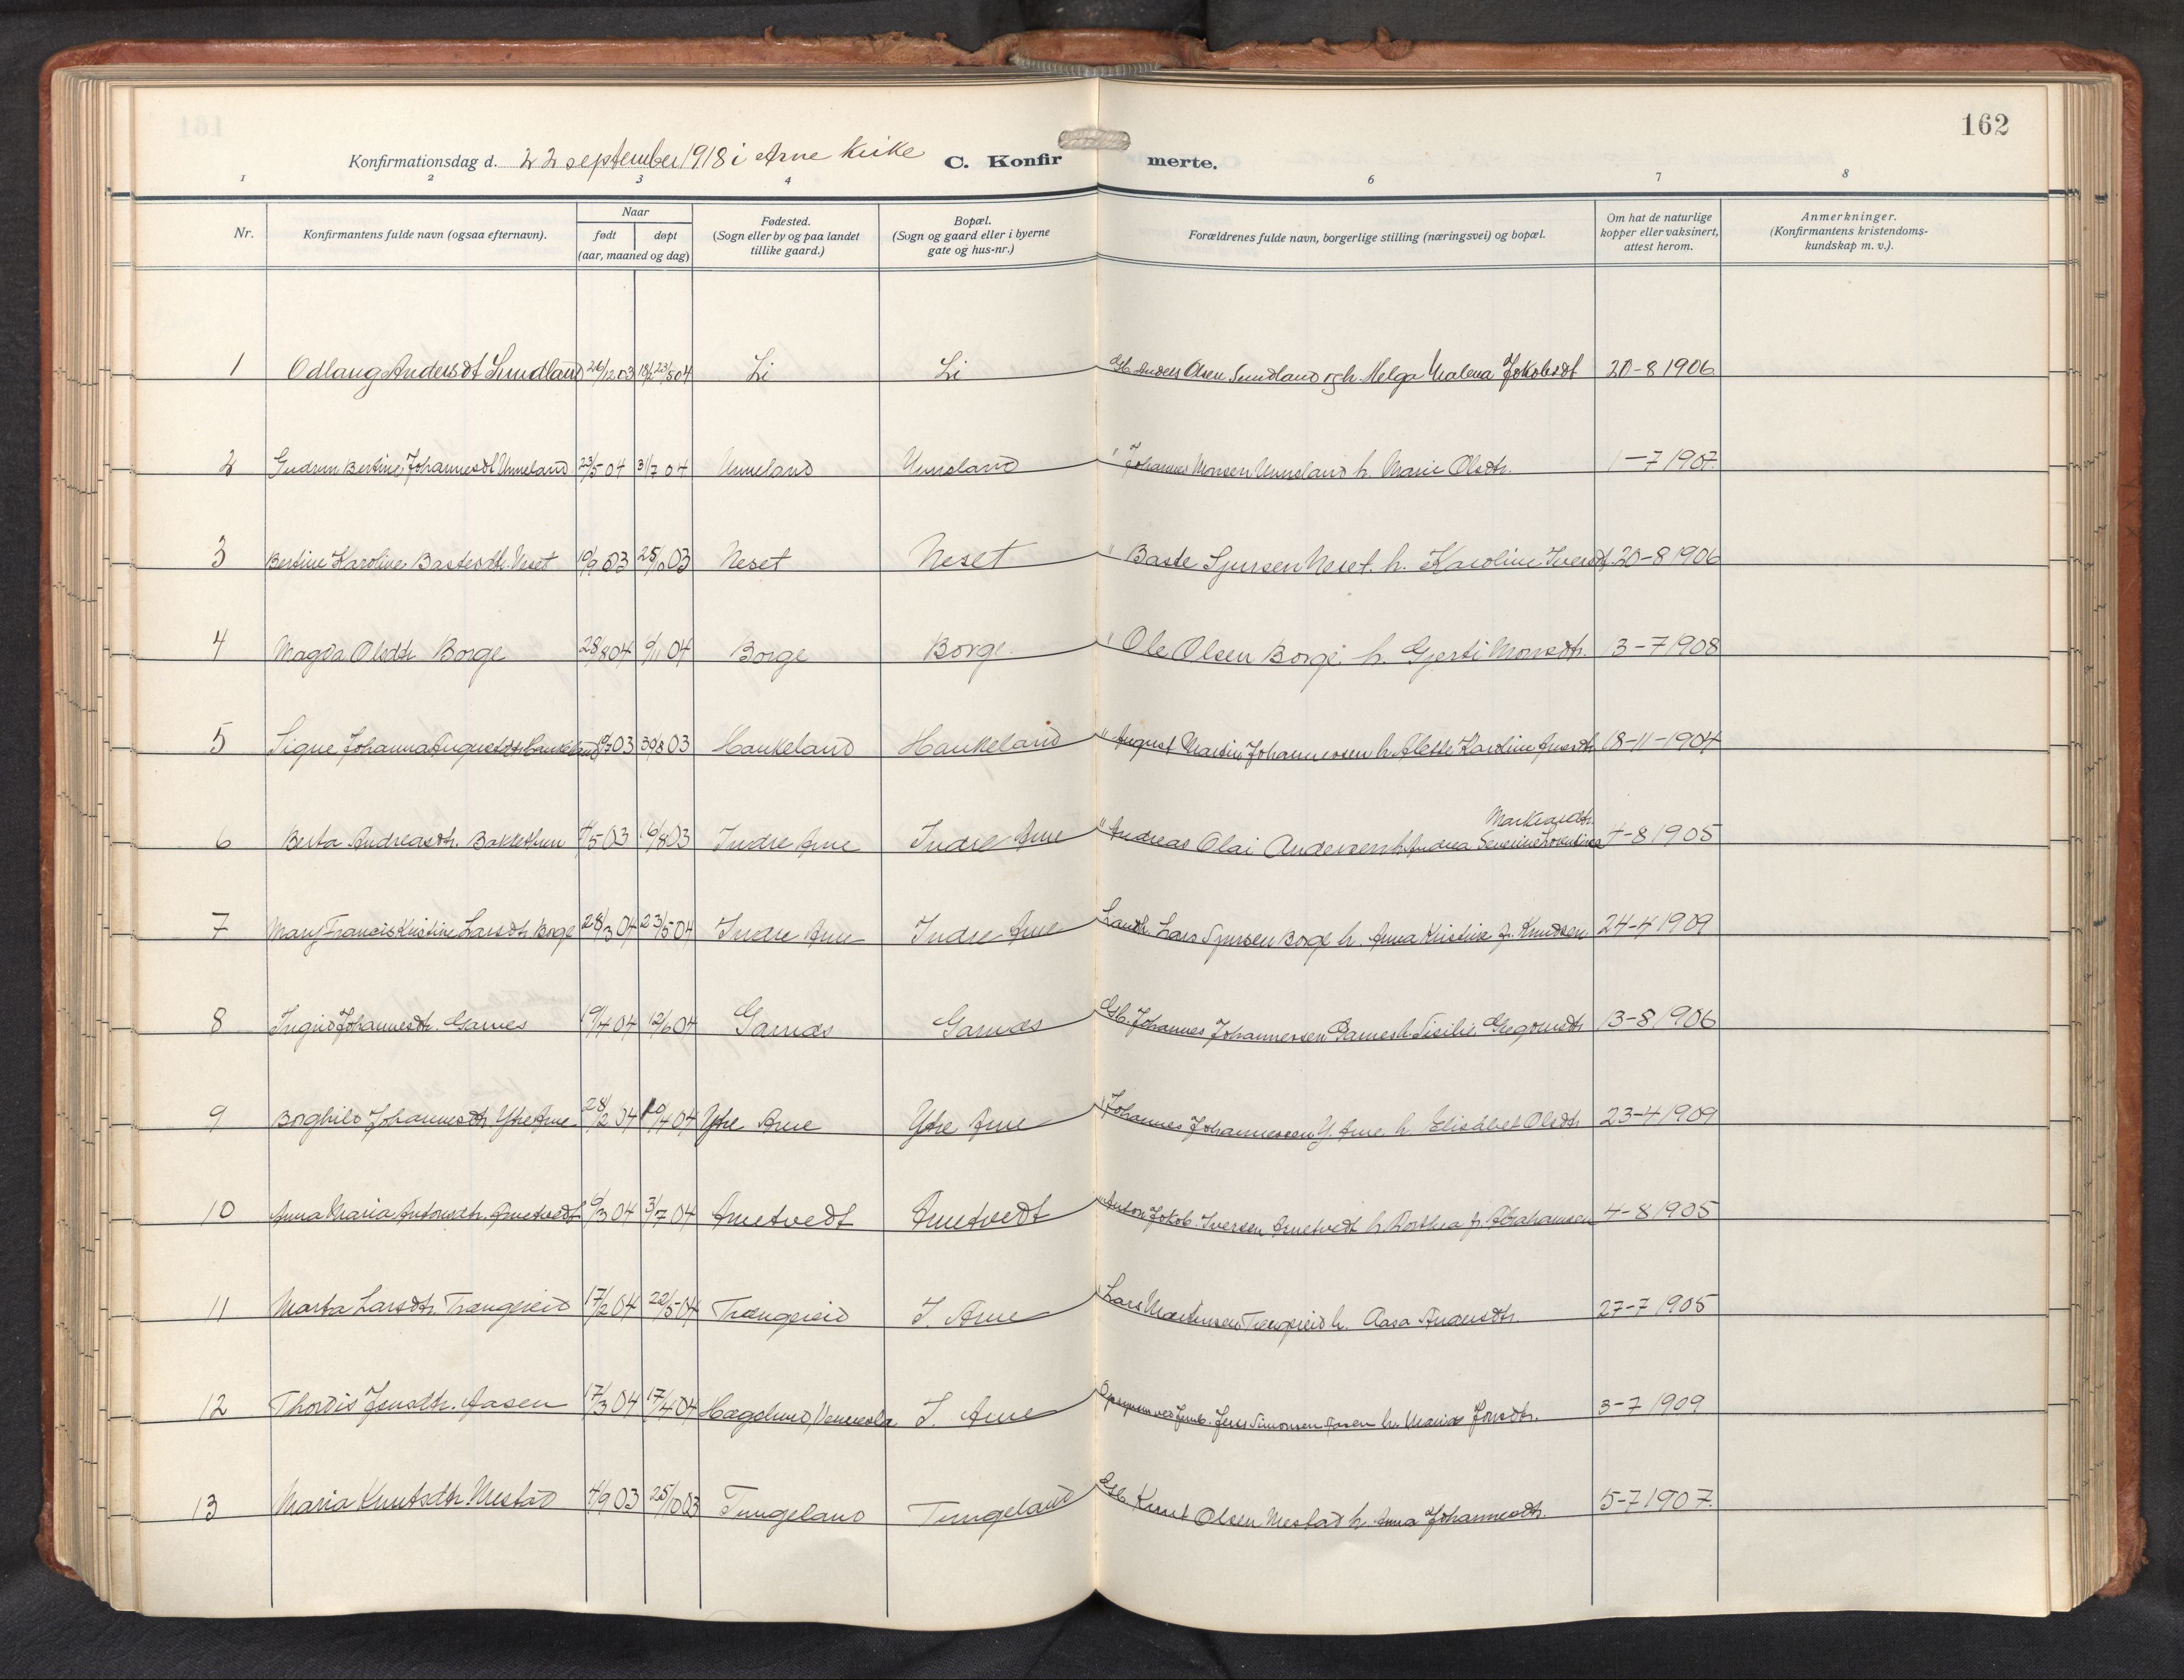 162
Konfirmationsdag d. 22 september 1918 i Arne kirke C. Konfirmerte.
1 2 3 4 6 7 8
Nr. Konfirmantens fulde navn (ogsaa efternavn). Naar født døpt (aar, maaned og dag) Fødested. (Sogn eller by og paa landet tillike gaard.) Bopæl. (Sogn og gaard eller i byerne gate og hus-nr.) Forældrenes fulde navn, borgerlige stilling (næringsvei) og bopæl. Om hat de naturlige kopper eller vaksinert, attest herom. Anmerkninger. (Konfirmantens kristendomskundskap m. v.).
1 Odlaug Andersdt Sundland 26/12 03 23/5 04 Li Li Gb. Anders Olsen Sundland og h. Helga Malena Jakobsdt 20-8 1906
2 Gudrun Bertine Johannesdt Unneland 23/5 04 31/7 04 Unneland Unneland " Johannes Monsen Unneland h. Marie Olsdtr. 1-7 1907.
3 Bertine Karoline Bastesdtr. Neset 19/9 03 25/10 03 Neset Neset " Baste Sjursen Neset. h. Karoline Iversdt. 20-8 1906
4 Magda Olsdtr Borge 28/8 04 9/11 04 Borge Borge. " Ole Olsen Borge. h. Gjerti Monsdtr. 13-7 1908
5 Signe Johanna Augustdtr Haukeland 03 30/8 03 Haukeland Haukeland " August Martin Johannessen h. Alette Karoline 18-11-1904
6 Berta Andreasdtr. Bakketun 4/5 03 16/8 03 Indre Arne Indre Arne " Andreas Olai Andersen h. Andrea Severine Markusdtr. 4-8 1905
7 Mary Francis Kristine Larsdtr Borge 28/3 04 23/5 04 Indre Arne Indre Arne Landh. Lars Sjursen Borge h. Anna Kristine f. Knudsen. 24-4 1909
8 Ingrid Johannesdtr. Garnes 19/4 04 12/6 04 Garnæs Garnæs Gb. Johannes Johannessen Garnes h. Sisilie Gregoriusdtr 13-8 1906
9 Borghild Johannesdtr Ytre Arne. 28/2 04 10/4 04 Ytre Arne Ytre Arne " Johannes Johannessen Y. Arne h. Elisabet Olsdtr 23-4 1909
10 Anna Maria Antonsdtr. Arnetvedt 9/3 04 3/7 04 Arnetvedt Arnetvedt " Anton Jakob Iversen Arnetvedt h. Dorthea f. Abrahamsen 4-8 1905
11 Marta Larsdtr. Trængereid 17/2 04 22/5 04 Trængereid I. Arne Lars Martinsen Trængereid h. Aasa Andersdtr. 27-7 1905
12 Thordis Jensdtr. Aasen 17/3 04 17/4 04 Hægeland, Vennesla I. Arne Jens Simonsen Aasen h. Maria Jonsdtr. 3-7 1909
13 Maria Knutsdtr. Mestad 4/9 03 25/10 03 Tungeland Tungeland Gb. Knut Olsen Mestad h. Anna Johannesdtr. 5-7 1907.